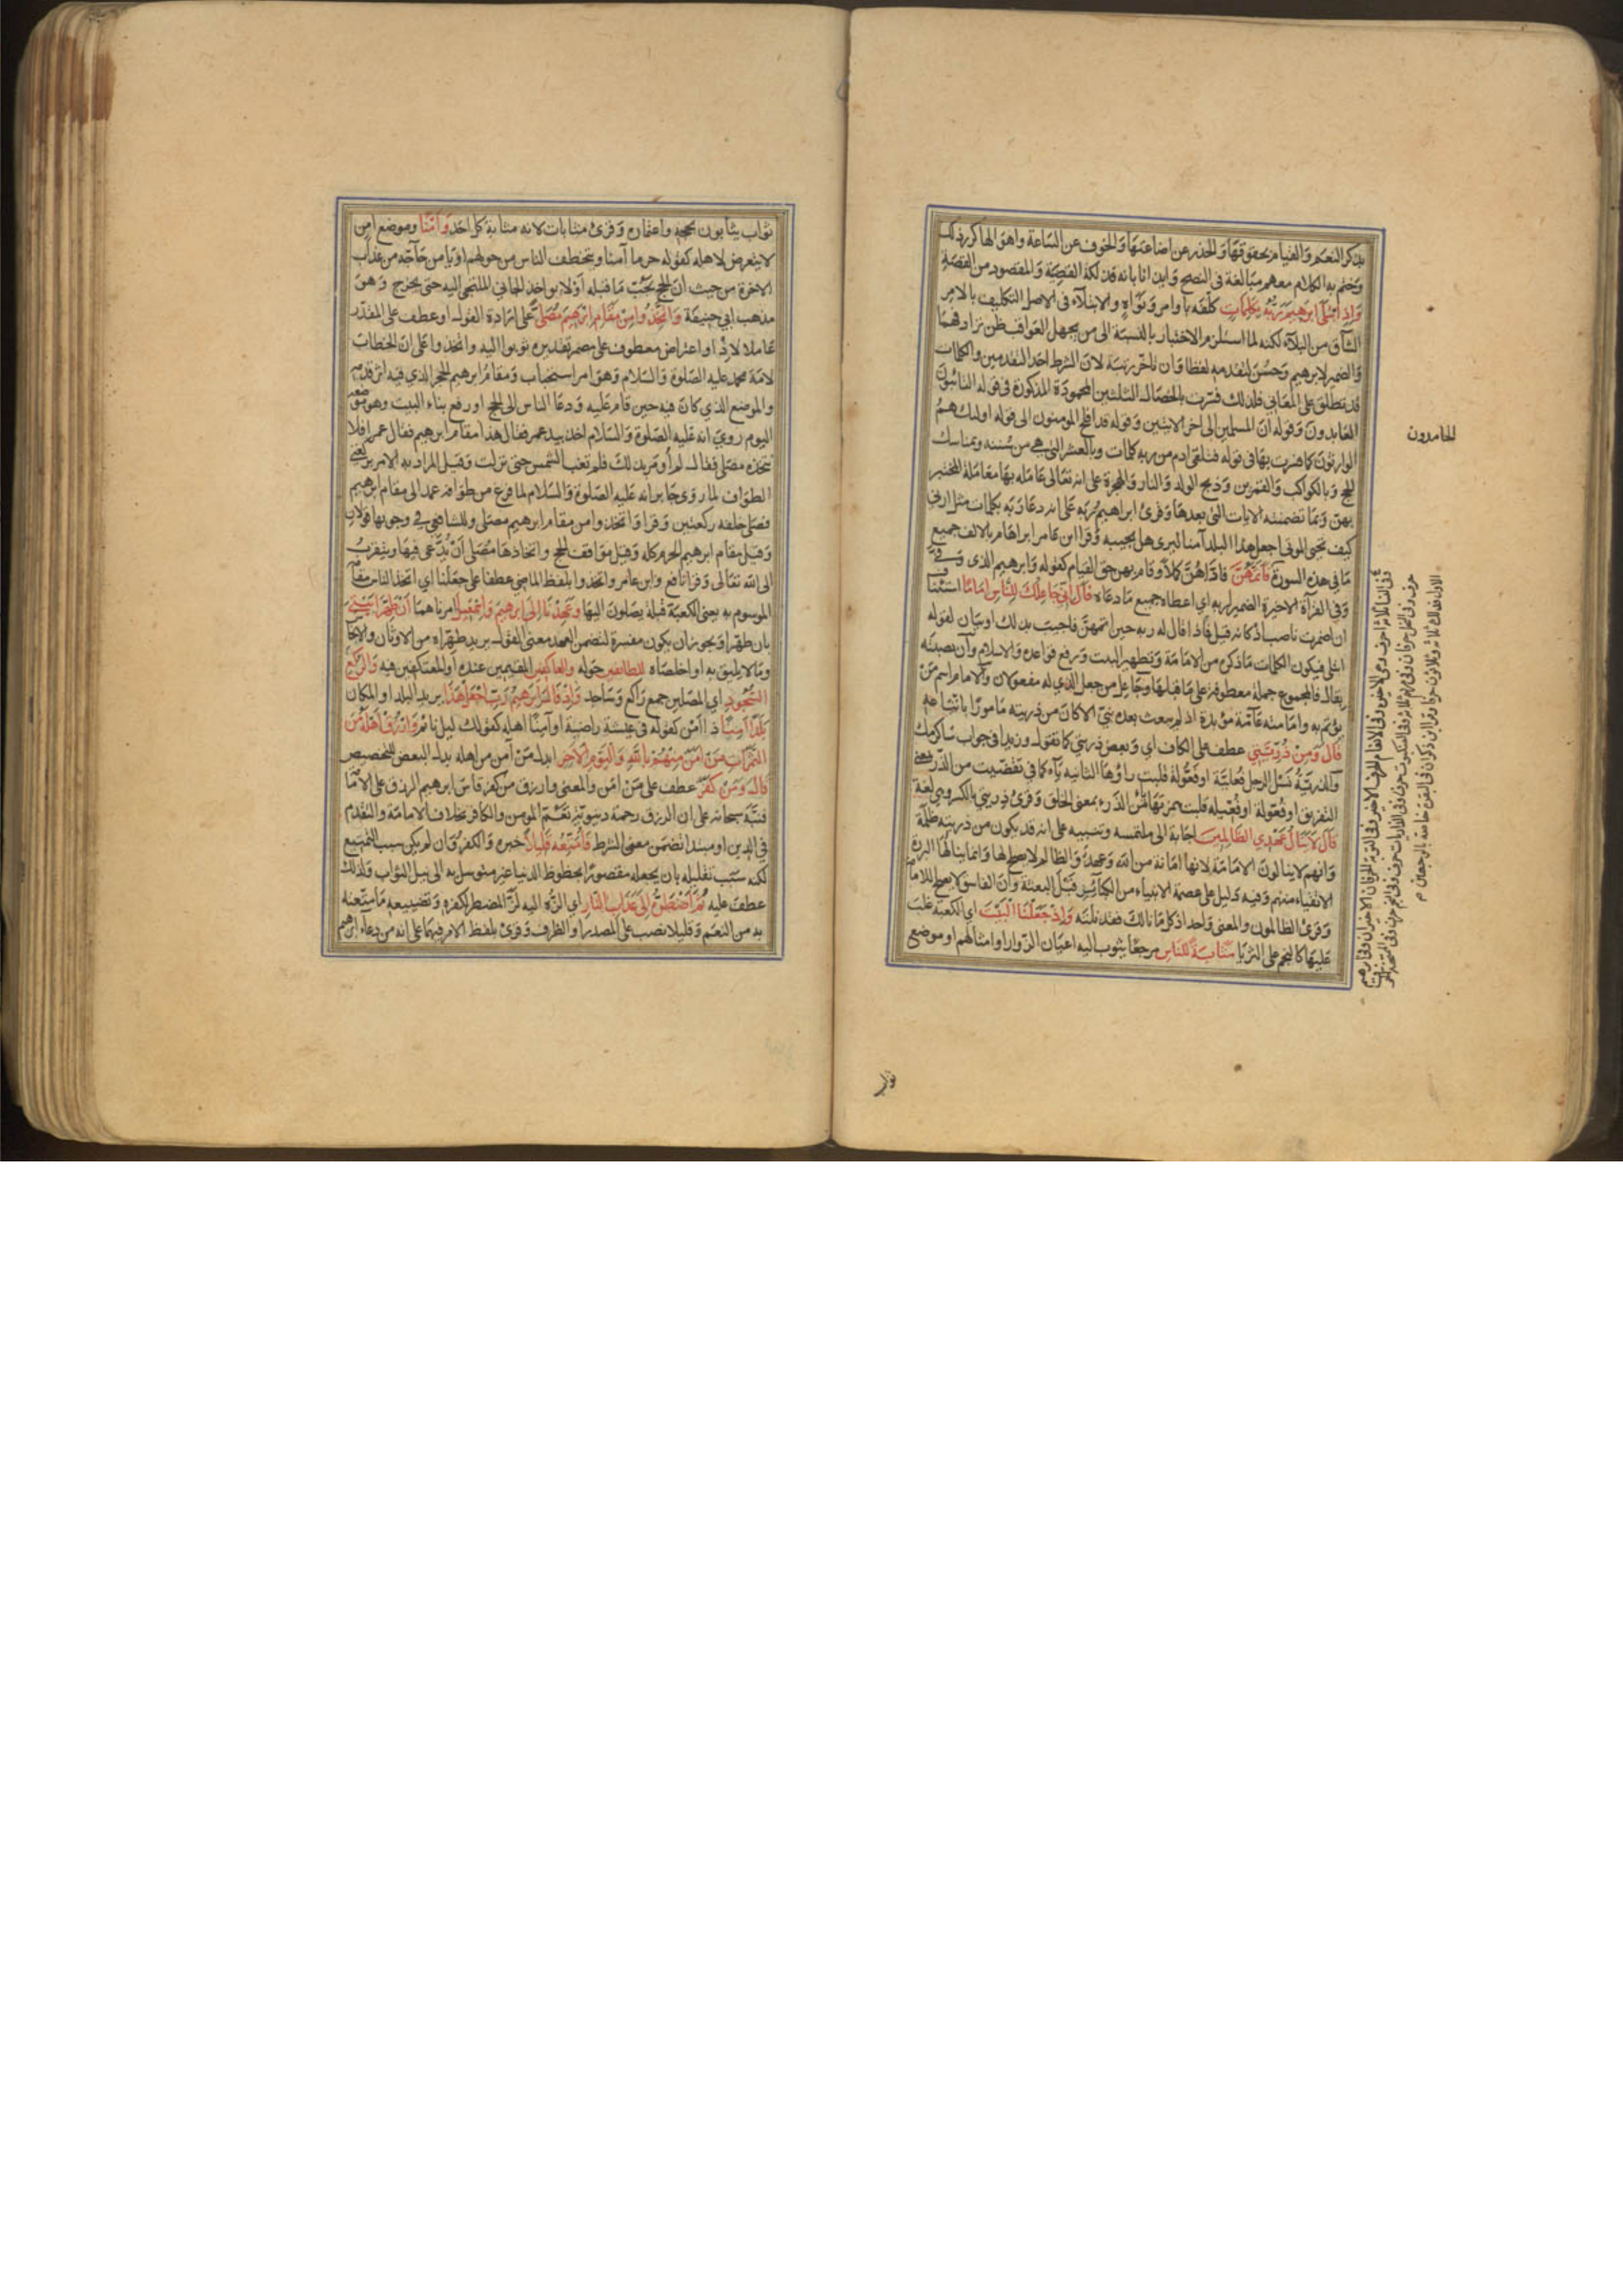 بذكر النعم والقيام بحقوقها والحذر عن اضاعتها والخوف عن الساعة واهوالها كرر ذلك
وختم به الكلام معهم مبالغة فى النصح وايذانا بانه فذلكة القضية والمقصود من القصة
واذ ابتلى ابرهيم ربه بكلمات كلفه باوامر ونواه والابتلاء فى الاصل التكليف بالامر
الشاق من البلاء لكنه لما استلزم الاختبار بالنسبة الى من يجهل العواقب ظن ترادفهما
والضمير لابرهيم وحسن لتقدمه لفظا وان تاخر رتبة لان الشرط احد التقدمين والكلمات
قد تطلق على المعانى فلذلك فسرت بالخصال الثلثين المحمودة المذكورة فى قوله التائبون
العابدون وقوله ان المسلمين الى اخر الايتين وقوله قد افلح المومنون الى قوله اولئك هم
الوارثون كما فسرت بها فى قوله فتلقى ادم من ربه كلمات وبالعشر التى هى من سننه وبمناسك
الحج وبالكواكب والقمرين وذبح الولد والنار والهجرة على انه تعالى عامله بها معاملة المختبر
بهن وبما تضمنته الايات التى بعدها وقرئ ابراهيم ربه على انه دعا ربه بكلمات مثل ارنى
كيف تحيى الموتى اجعل هذا البلد آمنا ليرى هل يجيبه وقرا ابن عامر ابراهام بالالف جميع
ما فى هذه السورة فاتمهن فاداهن كملا وقام بهن حق القيام كقوله وابرهيم الذى وفى
وفى القرآة الاخيرة الضمير لربه اى اعطاه جميع ما دعاه قال انى جاعلك للناس اماما استئناف
ان اضمرت ناصب اذ كانه قيل فماذا قال له ربه حين اتمهن فاجيب بذلك او بيان لقوله
ابتلى فيكون الكلمات ما ذكره من الامامة وتطهير البيت ورفع قواعده والاسلام وان نصبته
بقال فالمجموع جملة معطوفة على ما قبلها وجاعل من جعل الذى له مفعولان والامام اسم من
يؤتم به وامامته عامة مؤبدة اذ لم يبعث بعده نبى الا كان من ذريته مامورا باتباعه
قال ومن ذريتى عطف على الكاف اى وبعض ذريتى كما تقول وزيدا فى جواب ساكرمك
والذرية نسل الرجل فعلية او فعولة قلبت راؤها الثانيه ياء كما فى تقضيت من الذر بمعنى
التفريق او فعولة او فعيلة قلبت همزتها من الذرء بمعنى الخلق وقرئ ذريتى بالكسر وهى لغة
قال لا ينال عهدى الظالمين اجابة الى ملتمسه وتنبيه على انه قد يكون من ذريته ظلمة
وانهم لا ينالون الامامة لانها امانة من الله وعهد والظالم لا يصلح لها وانما ينالها البررة
الاتقياء منهم وفيه دليل على عصمة الانبياء من الكبائر قبل البعثة وان الفاسق لا يصلح للامامة
وقرئ الظالمون والمعنى واحد اذ كل ما نالك فقد نلته واذ جعلنا البيت اى الكعبة غلب
عليها كالنجم على الثريا مثابة للناس مرجعا يثوب اليه اعيان الزوار او امثالهم او موضع
الحامدون
ثواب
ثواب يثابون بحجه واعتماره وقرئ مثابات لانه مثابة كل احد وامنا وموضع امن
لا يتعرض لاهله كقوله حرما آمنا ويتخطف الناس من حولهم او يامن حاجه من عذاب
الاخرة من حيث ان الحج يجب ما قبله او لا يواخذ الجانى الملتجى اليه حتى يخرج وهو
مذهب ابى حنيفة واتخذوا من مقام ابرهيم مصلى على ارادة القول او عطف على المقدر
عاملا لاذ او اعتراض معطوف على مضمر تقديره توبوا اليه واتخذوا على ان الخطاب
لامة محمد عليه الصلوة والسلام وهو امر استحباب ومقام ابرهيم الحجر الذى فيه اثر قدمه
والموضع الذى كان فيه حين قام عليه ودعا الناس الى الحج او رفع بناء البيت وهو موضعه
اليوم روى انه عليه الصلوة والسلام اخذ بيد عمر فقال هذا مقام ابرهيم فقال عمر افلا
نتخذه مصلى فقال لم أومر بذلك فلم تغب الشمس حتى نزلت وقيل المراد به الامر بركعتى
الطواف لما روى جابر انه عليه الصلوة والسلام لما فرغ من طوافه عمد الى مقام ابرهيم
فصلى خلفه ركعتين وقرا واتخذوا من مقام ابرهيم مصلى وللشافعى فى وجوبها قولان
وقيل مقام ابرهيم الحرم كله وقيل مواقف الحج واتخاذها مصلى أن يدعى فيها ويتقرب
الى الله تعالى وقرا نافع وابن عامر واتخذوا بلفظ الماضى عطفا على جعلنا اى اتخذ الناس مقامه
الموسوم به يعنى الكعبة قبلة يصلون اليها وعهدنا الى ابرهيم واسمعيل امرناهما أن طهرا بيتى
بان طهرا ويجوز ان يكون مفسرة لتضمن العهد معنى القول يريد طهراه من الاوثان والانجاس
وما لا يليق به او اخلصاه للطائفين حوله والعاكفين المقيمين عنده او المعتكفين فيه والركع
السجود اى المصلين جمع راكع وساجد واذ قال ابرهيم رب اجعل هذا يريد البلد او المكان
بلدا آمنا ذا امن كقوله فى عيشة راضية او آمنا اهله كقولك ليل نائم وارزق اهله من
الثمرات من آمن منهم بالله واليوم الآخر ابدل من آمن من اهله بدل البعض للتخصيص
قال ومن كفر عطف على من آمن والمعنى وارزق من كفر قاس ابرهيم الرزق على الامامة
فنبه سبحانه على ان الرزق رحمة دنيوية تعم المومن والكافر بخلاف الامامة والتقدم
فى الدين او مبتدا تضمن معنى الشرط فامتعه قليلا خبره والكفر وان لم يكن سبب التمتيع
لكنه سبب تقليله بان يجعله مقصورا بحظوظ الدنيا غير متوسل به الى نيل الثواب ولذلك
عطف عليه ثم اضطره الى عذاب النار اى الزه اليه لز المضطر لكفره وتضييعه ما متعته
به من النعم وقليلا نصب على المصدر او الظرف وقرئ بلفظ الامر فيهما على انه من دعاء ابرهيم